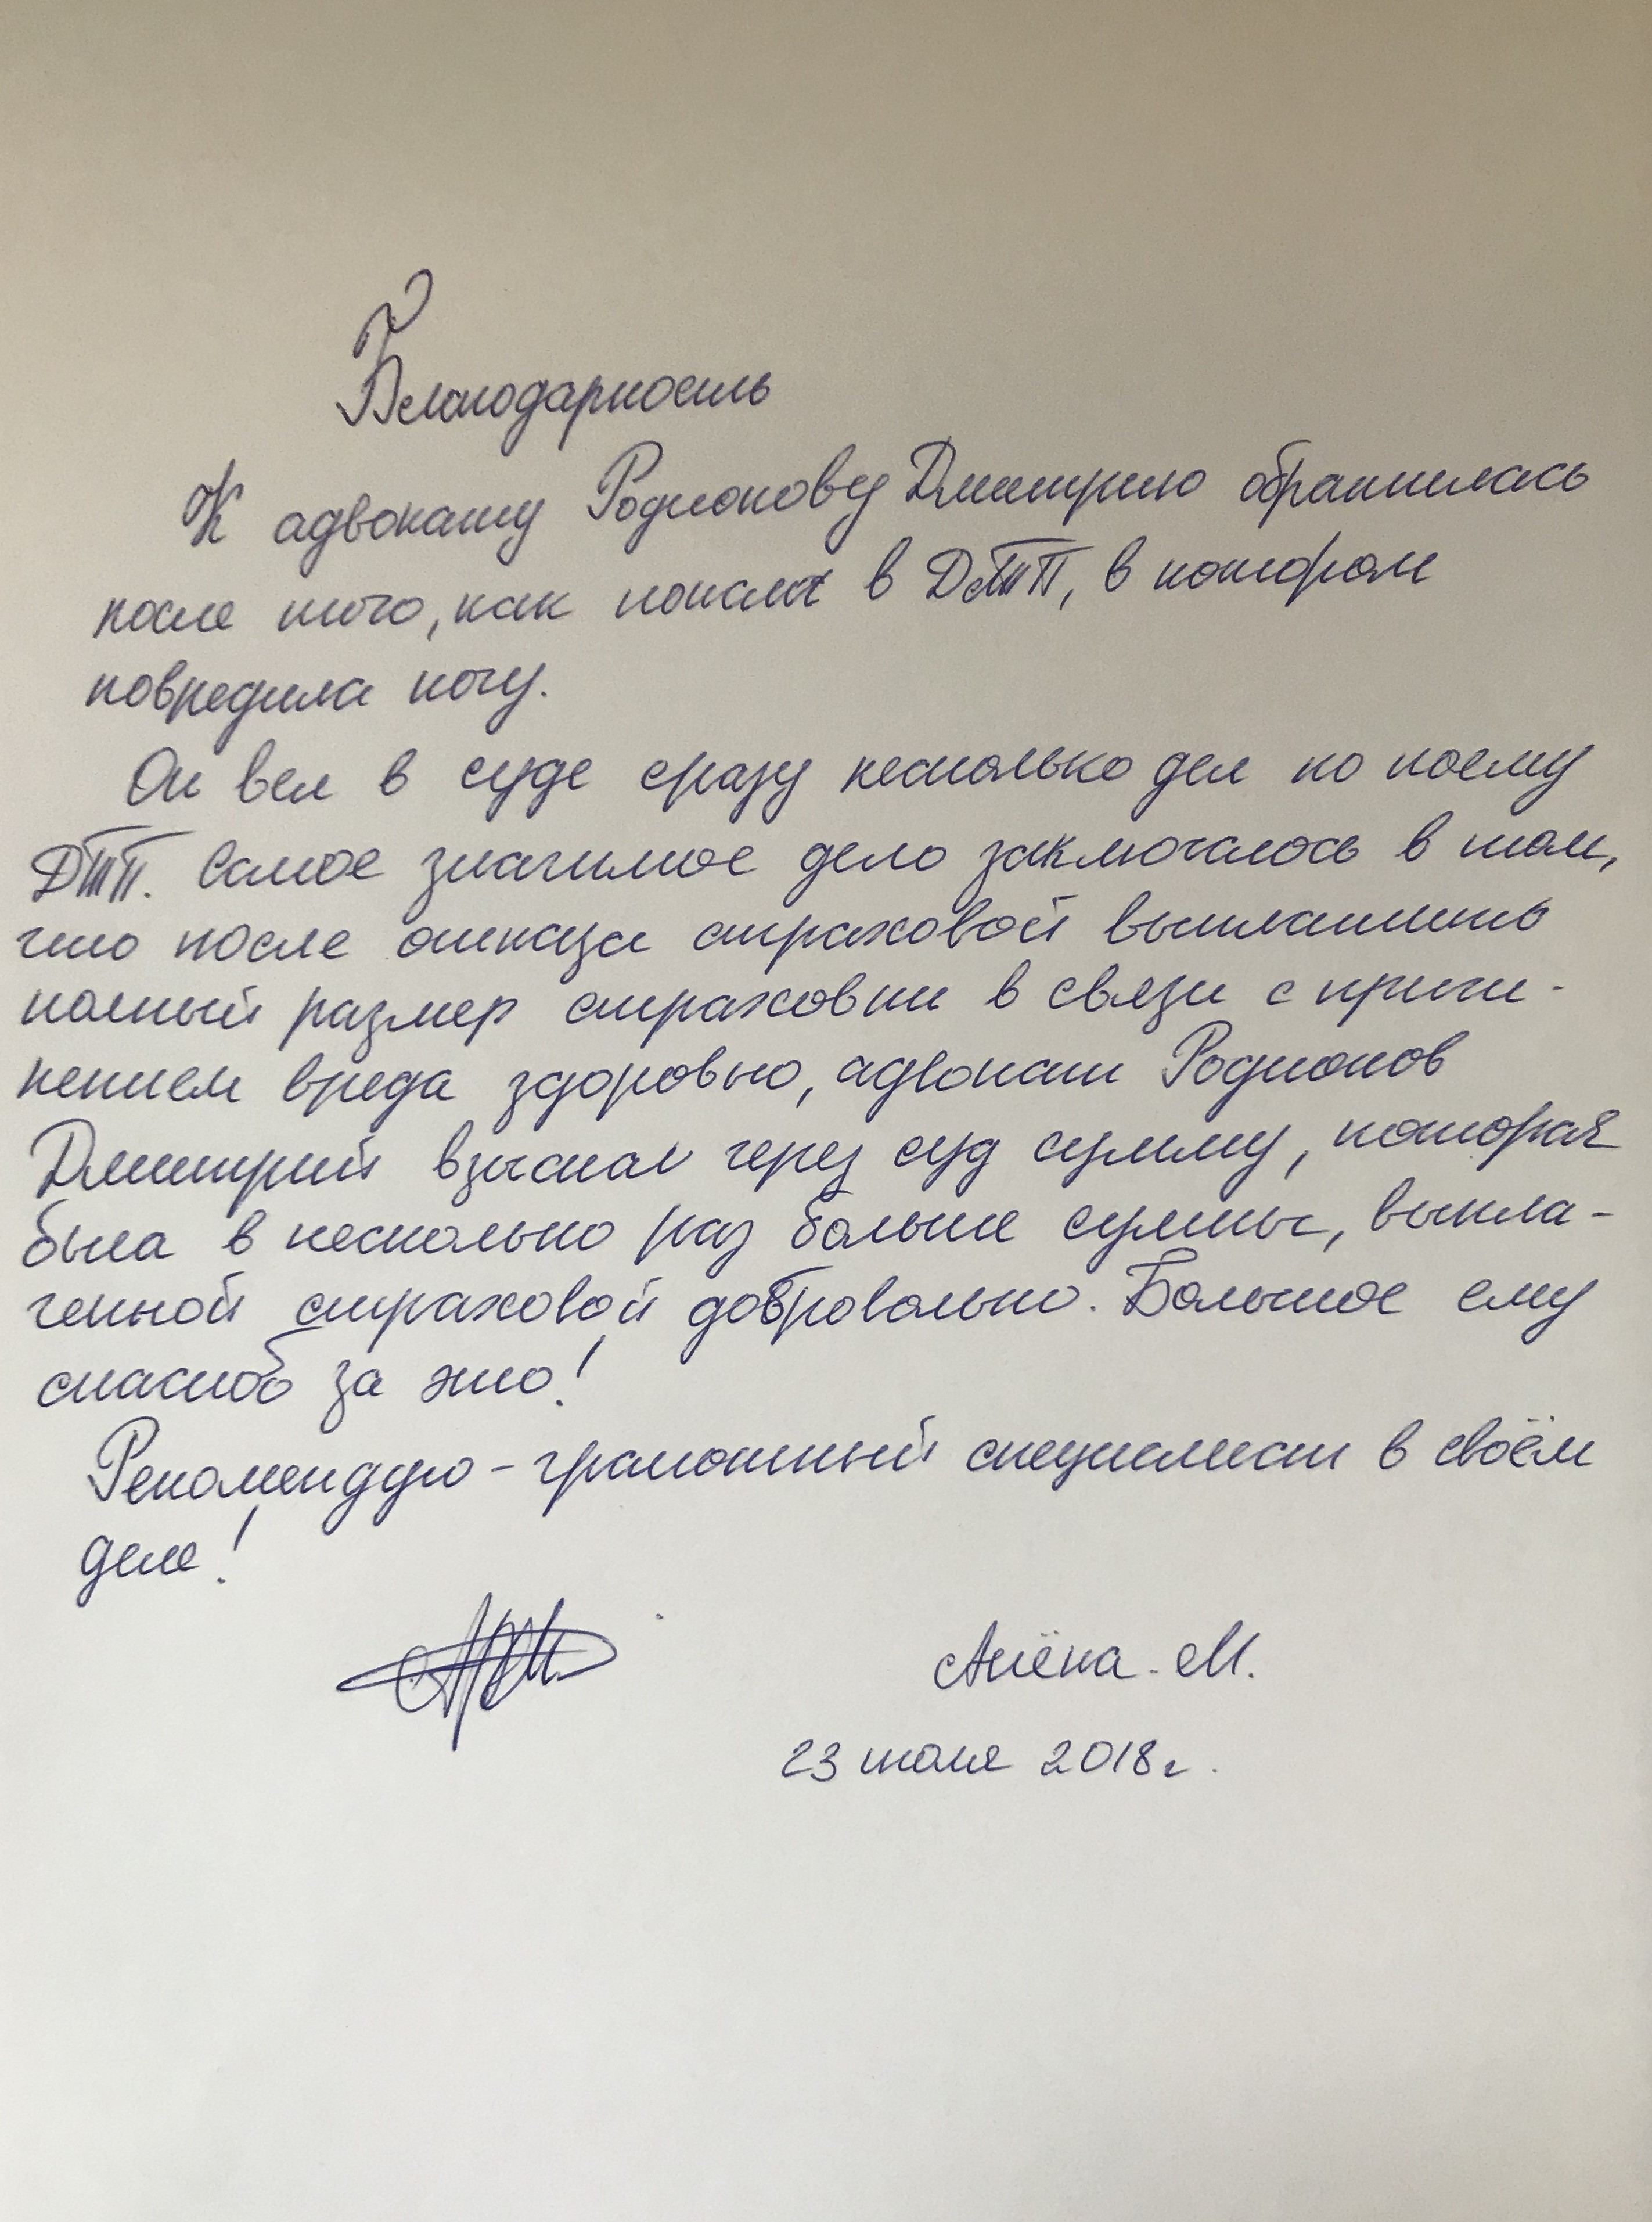 Благодарность
К адвокату Родионову Дмитрию обратилась
после того, как попала в ДТП, в котором
повредила ногу.
Он вел в суде сразу несколько дел по моему
ДТП. Самое значимое дело заключалось в том,
что после отказа страховой выплатить
полный размер страховки в связи с причи-
нением вреда здоровью, адвокат Родионов
Дмитрий взыскал через суд сумму, которая
была в несколько раз больше суммы, выпла-
ченной страховой добровольно. Большое ему
спасибо за это!
Рекомендую - грамотный специалист в своём
деле!
Алёна М.
23 июля 2018г.